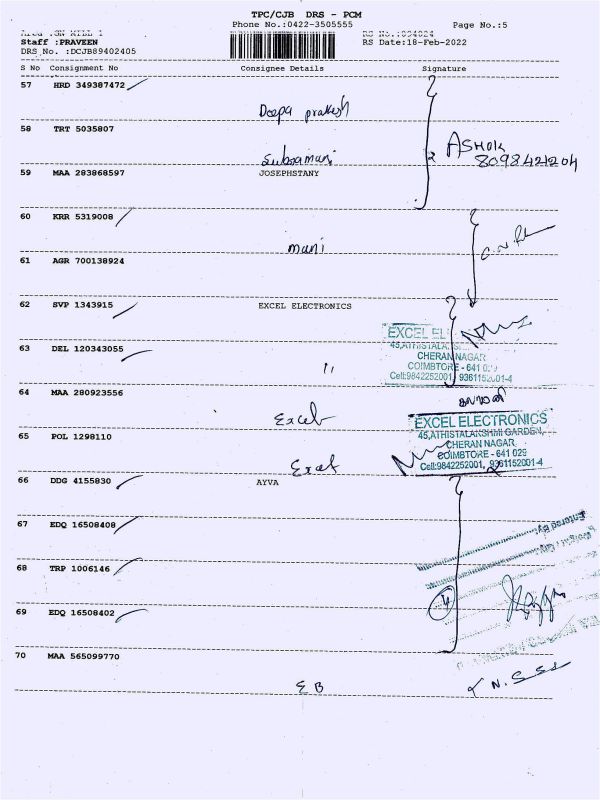 TPC/CJB DRS - PCM
Phone No.:0422-3505555 Page No.:5
Staff :PRAVEEN RS Date:18-Feb-2022
DRS No. :DCJB89402405
S No Consignment No Consignee Details Signature
57 HRD 349387472
Deepa prakesh
58 TRT 5035807
Subramani
ASHOK
8098421204
59 MAA 283868597 JOSEPHSTANY
60 KRR 5319008
mani
61 AGR 700138924
62 SVP 1343915 EXCEL ELECTRONICS
EXCEL EL
63 DEL 120343055
CHERAN NAGAR
COIMBTORE - 641
Cell:9842252001, 9361152001-4
64 MAA 280923556
Excel
EXCEL ELECTRONICS
45,ATHISTALAKSHMI GARDEN,
65 POL 1298110
CHERAN NAGAR
COIMBTORE - 641 029
Excel
Cell:9842252001, 9361152001-4
66 DDG 4155830 AYVA
67 EDQ 16508408
Entered By:
68 TRP 1006146
4
69 EDQ 16508402
70 MAA 565099770
EB